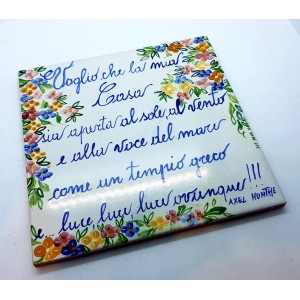 Voglio che la mia
Casa
sia aperta al sole, al vento
e alla voce del mare
come un tempio greco
e... luce, luce, luce ovunque!!!
AXEL MUNTHE